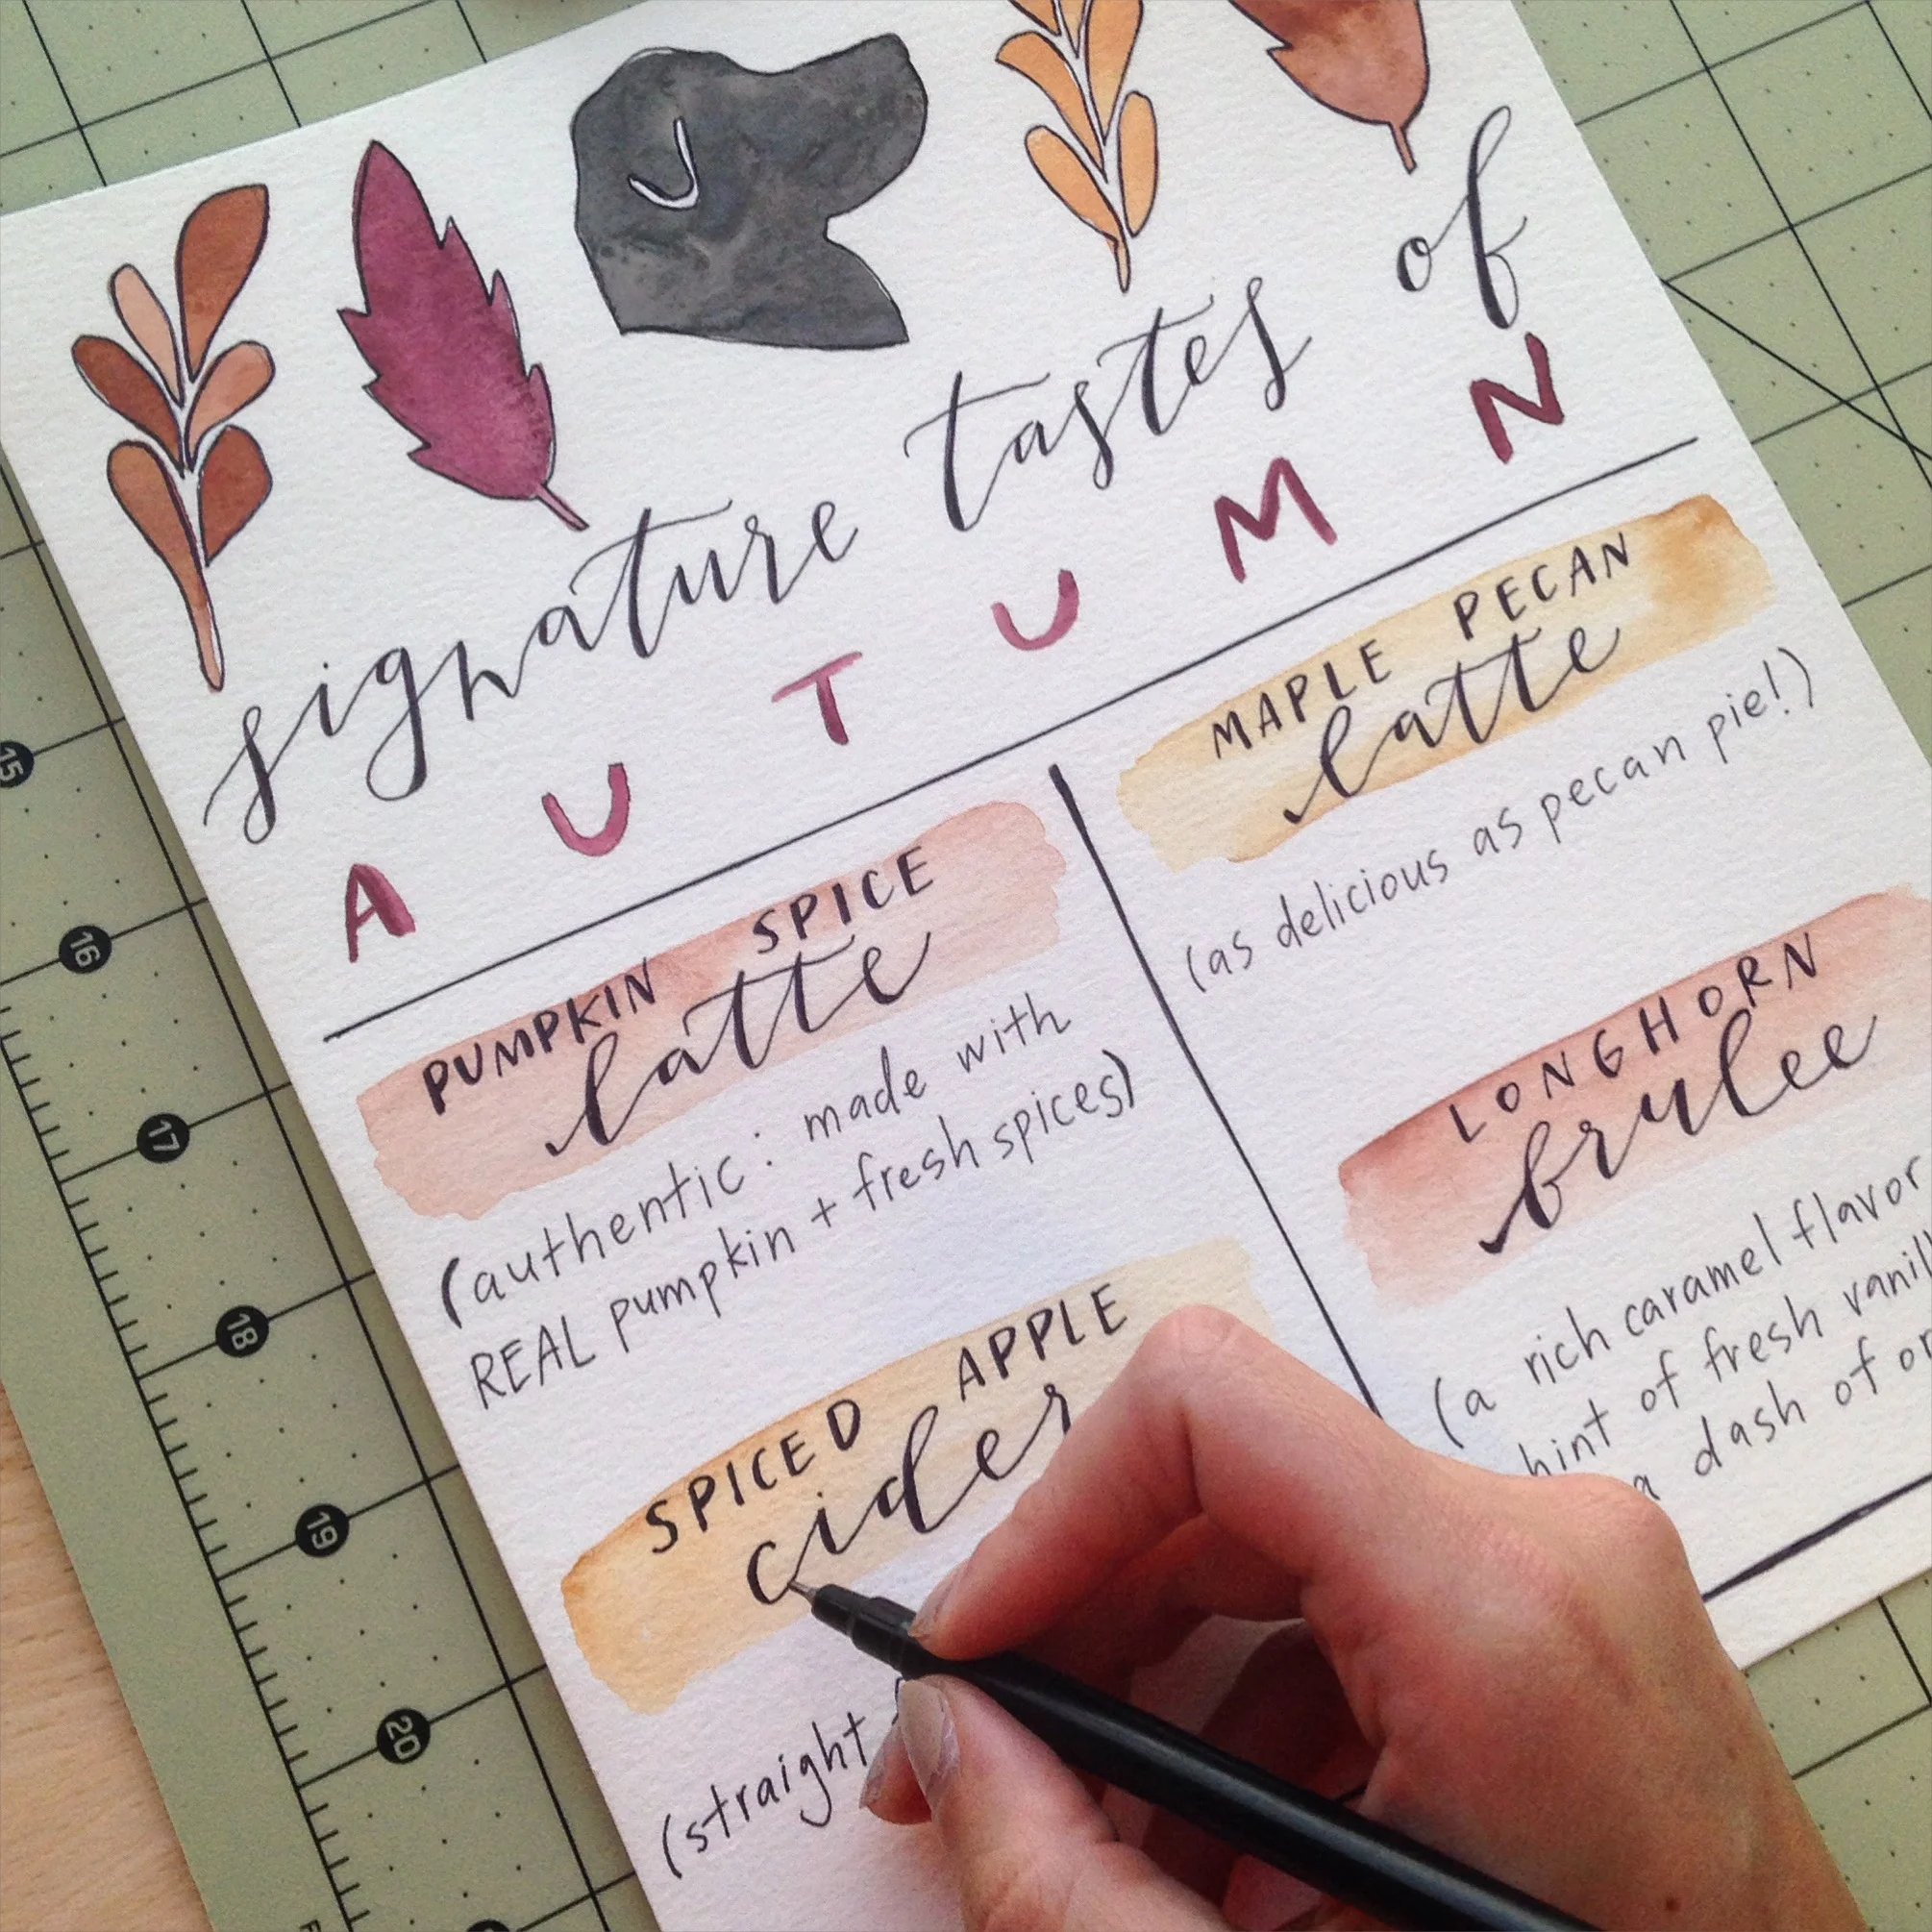 signature tastes of
AUTUMN
PUMPKIN SPICE
latte
(authentic: made with
REAL pumpkin + fresh spices)
SPICED APPLE
cider
(straight
MAPLE PECAN
latte
(as delicious as pecan pie!)
LONGHORN
brulee
(a rich caramel flavor
hint of fresh
a dash of
15
16
17
18
19
20